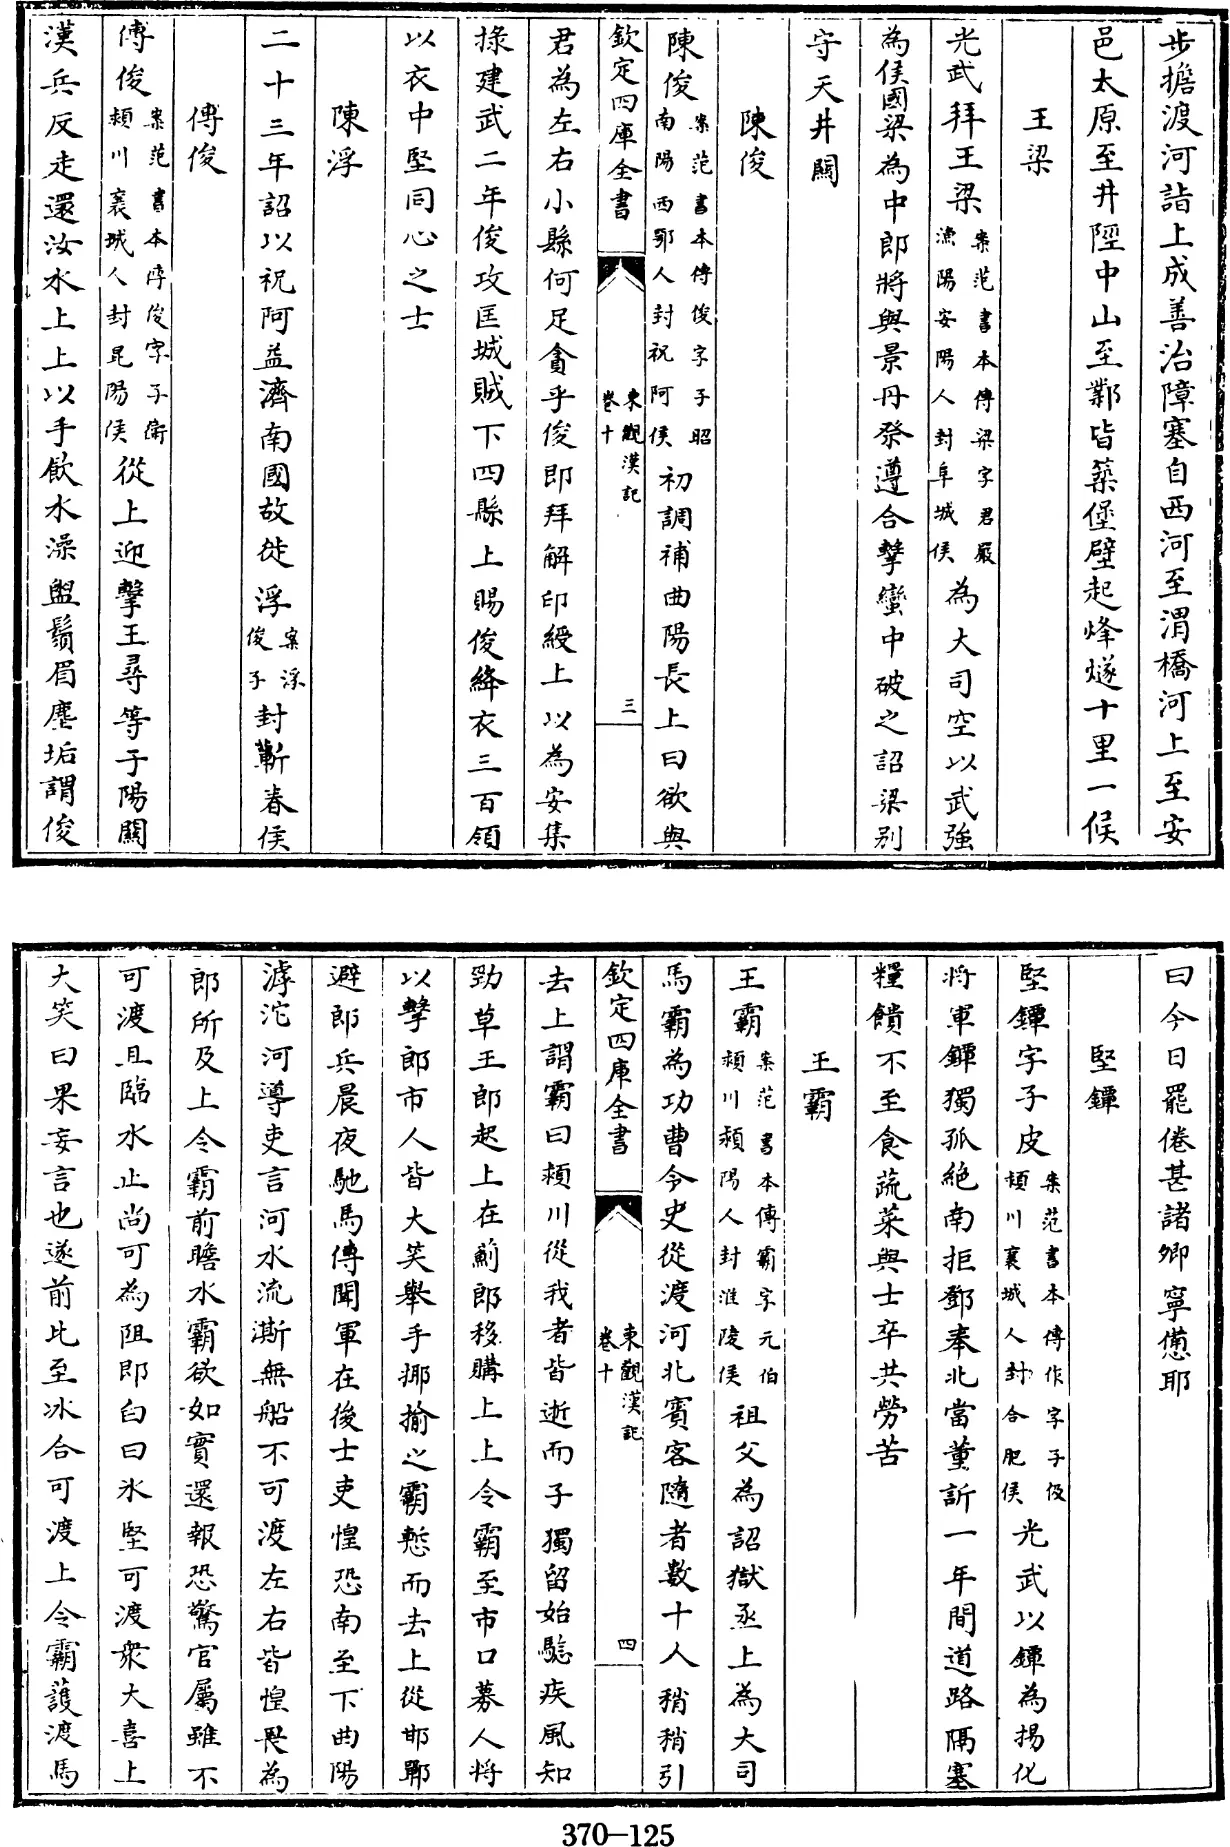 步擔渡河詣上成善治障塞自西河至渭橋河上至安
邑太原至井陘中山至鄴皆築堡壁起烽燧十里一候
王梁
光武拜王梁案范書本傳梁字君嚴漁陽安陽人封阜城侯為大司空以武強
為侯國梁為中郎將與景丹祭遵合擊蠻中破之詔梁别
守天井關
陳俊
陳俊案范書本傳俊字子昭南陽西鄂人封祝阿侯初調補曲陽長上曰欲與
欽定四庫全書 東觀漢記 卷十 三
君為左右小縣何足貪乎俊即拜解印綬上以為安集
掾建武二年俊攻匡城賊下四縣上賜俊絳衣三百領
以衣中堅同心之士
陳浮
二十三年詔以祝阿益濟南國故徙浮案浮俊子封蘄春侯
傅俊
傅俊案范書本傳俊字子衛潁川襄城人封昆陽侯從上迎擊王尋等于陽關
漢兵反走還汝水上上以手飲水澡盥鬚眉塵垢謂俊
曰今日罷倦甚諸卿寧憊耶
堅鐔
堅鐔字子皮案范書本傳作字子伋潁川襄城人封合肥侯光武以鐔為揚化
將軍鐔獨孤絶南拒鄧奉北當董訢一年間道路隔塞
糧饋不至食蔬菜與士卒共勞苦
王霸
王霸案范書本傳霸字元伯潁川潁陽人封淮陵侯祖父為詔獄丞上為大司
馬霸為功曹令史從渡河北賓客隨者數十人稍稍引
欽定四庫全書 東觀漢記 卷十 四
去上謂霸曰潁川從我者皆逝而子獨留始驗疾風知
勁草王郎起上在薊郎移購上上令霸至市口募人將
以擊郎市人皆大笑舉手揶揄之霸慙而去上從邯鄲
避郎兵晨夜馳馬傳聞軍在後士吏惶恐南至下曲陽
滹沱河導吏言河水流澌無船不可渡左右皆惶畏為
郎所及上令霸前瞻水霸欲如實還報恐驚官屬雖不
可渡且臨水止尚可為阻即白曰氷堅可渡衆大喜上
大笑曰果妄言也遂前比至冰合可渡上令霸護渡馬
370-125